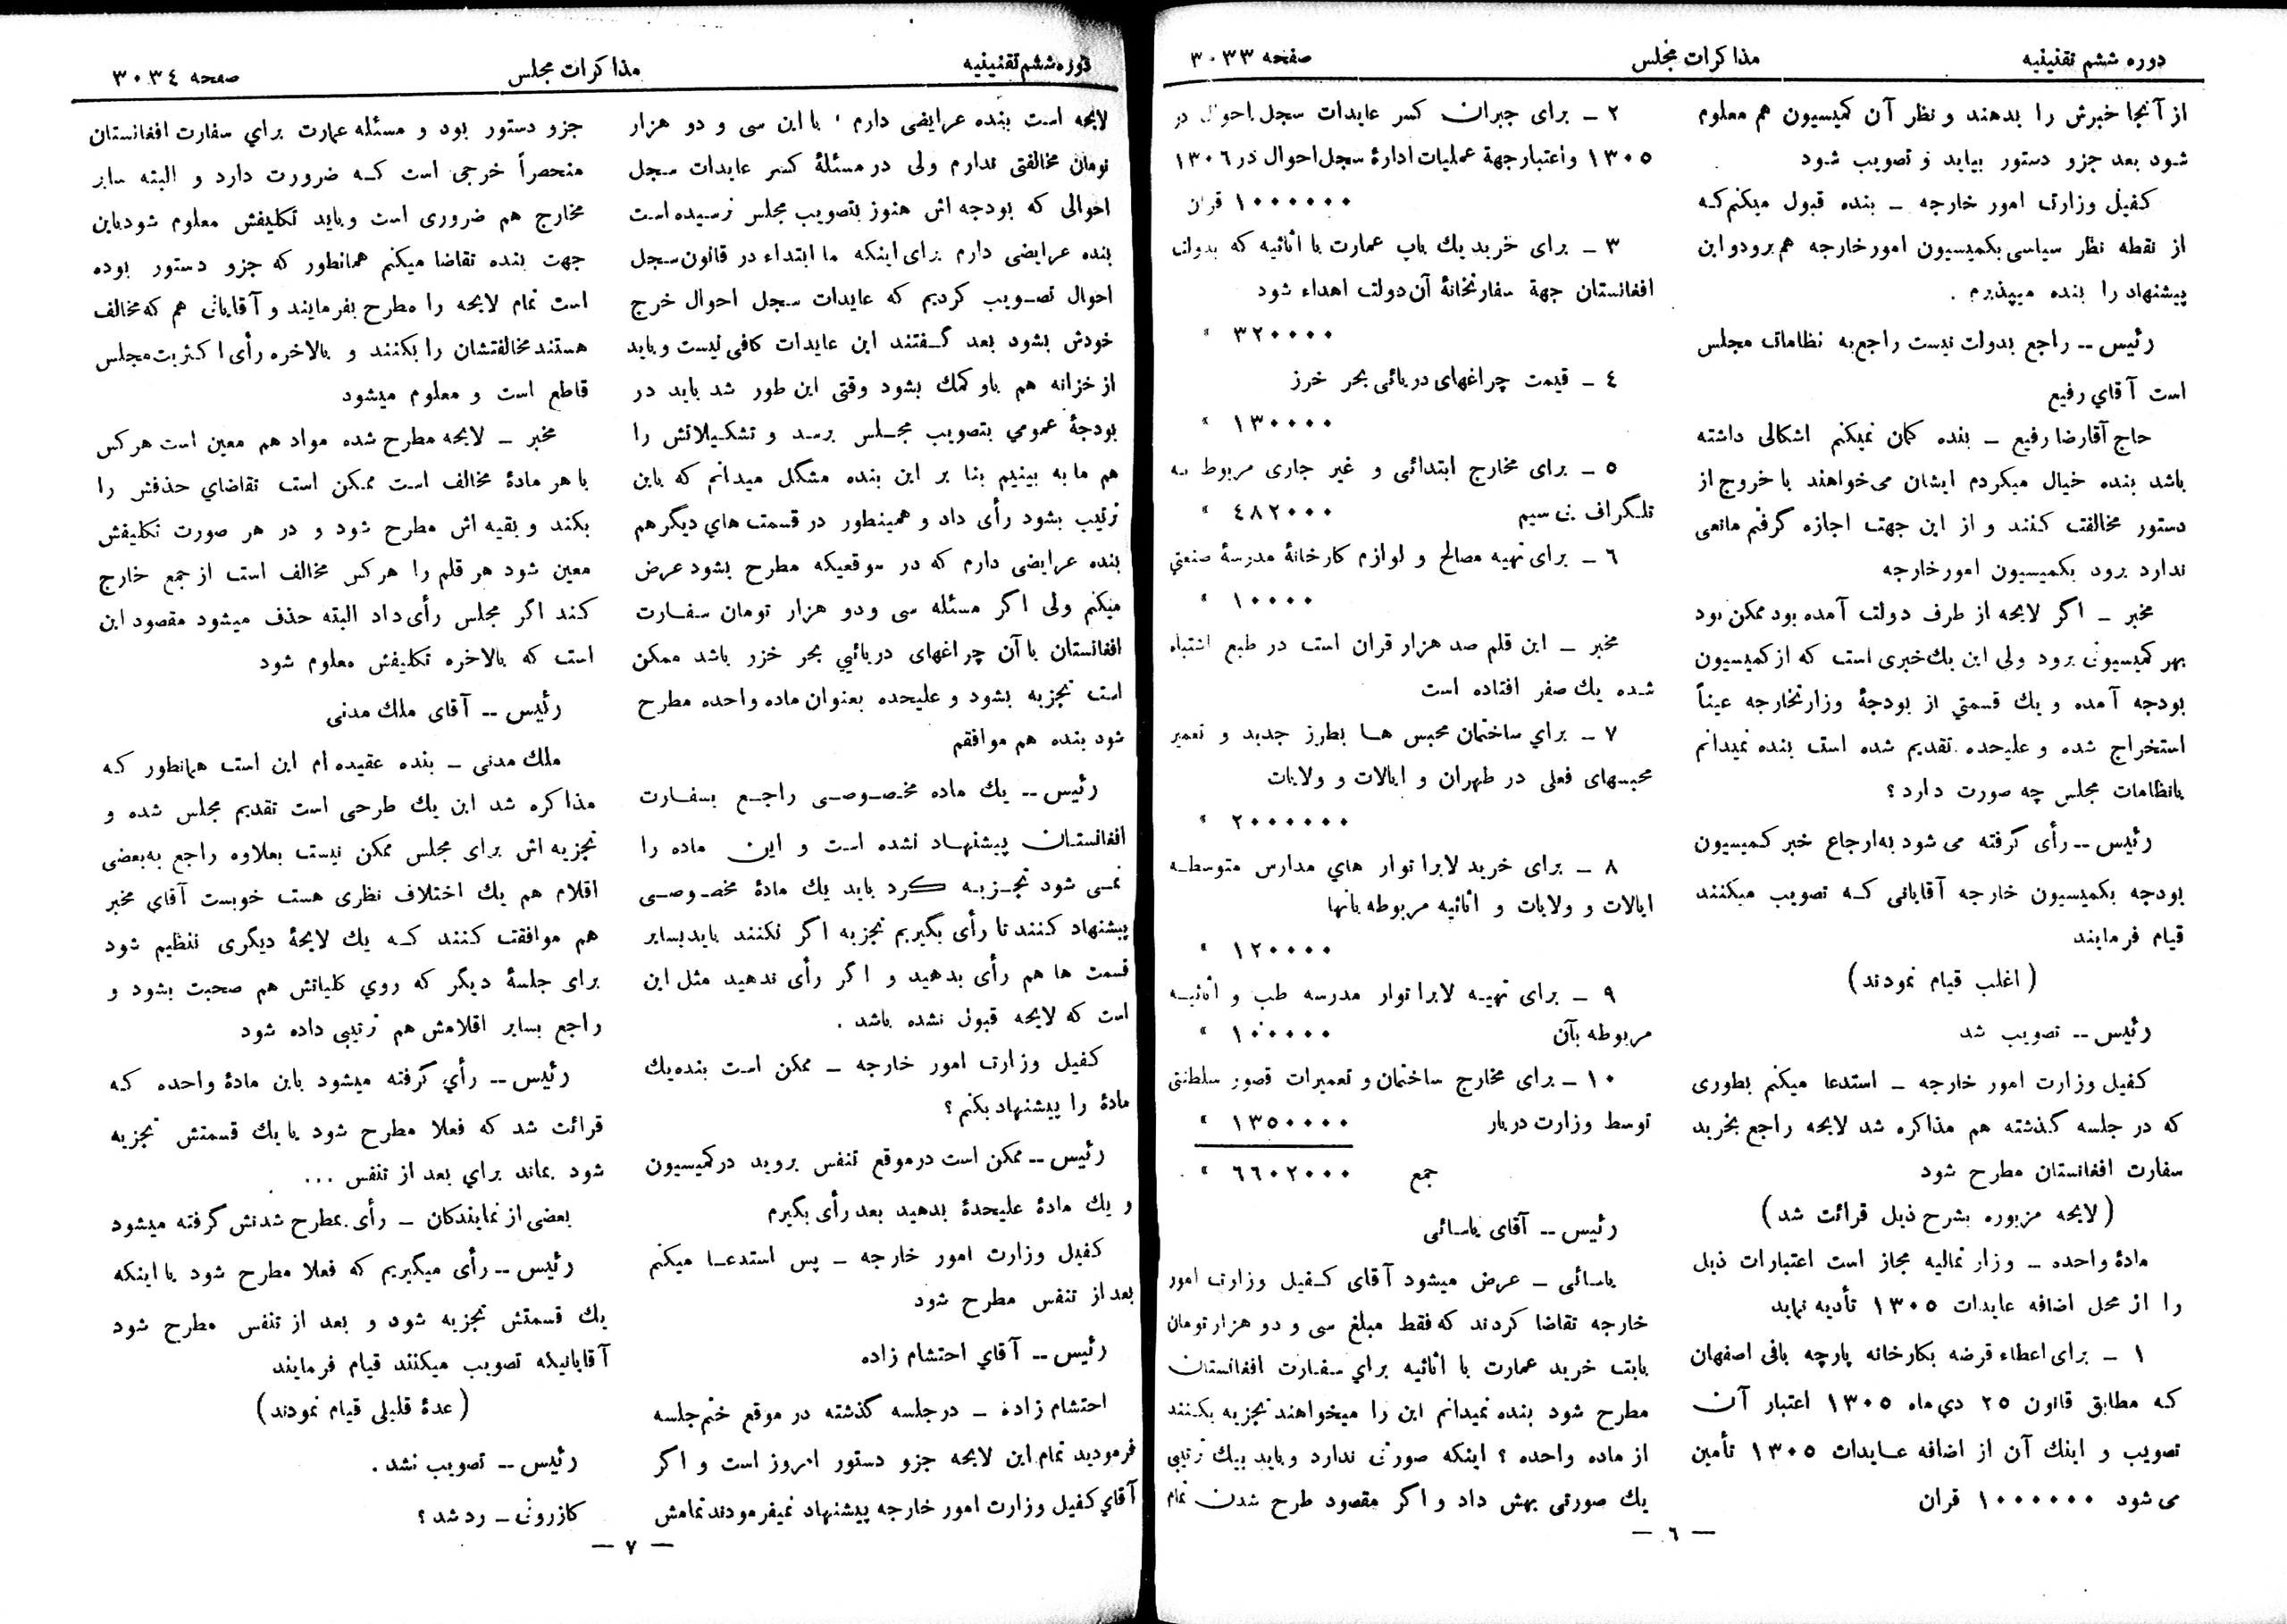 دوره ششم تقنینیه
مذاکرات مجلس
صفحه ۳۰۳۳
از آنجا خبرش را بدهند و نظر آن کمیسیون هم معلوم
شود بعد جزو دستور بیاید و تصویب شود
کفیل وزارت امور خارجه ـ بنده قبول میکنم که
از نقطه نظر سیاسی بکمیسیون امور خارجه هم برود و این
پیشنهاد را بنده میپذیرم .
رئیس ـ راجع بدولت نیست راجع به نظامات مجلس
است آقاي رفیع
حاج آقا رضا رفیع ـ بنده گمان نمیکنم اشکالی داشته
باشد بنده خیال میکردم ایشان می‌خواهند با خروج از
دستور مخالفت کنند و از این جهت اجازه گرفتم مانعی
ندارد برود بکمیسیون امور خارجه
مخبر ـ اگر لایحه از طرف دولت آمده بود ممکن بود
بهر کمیسیونی برود ولی این یك خبری است که از کمیسیون
بودجه آمده و یك قسمتي از بودجهٔ وزارتخارجه عیناً
استخراج شده و علیحده تقدیم شده است بنده نمیدانم
بانظامات مجلس چه صورت دارد ؟
رئیس ـ رأی گرفته می شود به ارجاع خبر کمیسیون
بودجه بکمیسیون خارجه آقایانی که تصویب میکنند
قیام فرمایند
( اغلب قیام نمودند )
رئیس ـ تصویب شد
کفیل وزارت امور خارجه ـ استدعا میکنم بطوری
که در جلسه گذشته هم مذاکره شد لایحه راجع بخرید
سفارت افغانستان مطرح شود
( لایحه مزبوره بشرح ذیل قرائت شد )
مادهٔ واحده ـ وزارتمالیه مجاز است اعتبارات ذیل
را از محل اضافه عایدات ۱۳۰۵ تأدیه نماید
۱ ـ برای اعطاء قرضه بکارخانه پارچه بافی اصفهان
که مطابق قانون ۲۵ دي ماه ۱۳۰۵ اعتبار آن
تصویب و اینك آن از اضافه عایدات ۱۳۰۵ تأمین
می شود ۱۰۰۰۰۰۰ قران
۲ ـ برای جبران کسر عایدات سجل احوال در
۱۳۰۵ و اعتبار جهة عملیات ادارهٔ سجل احوال در ۱۳۰۶
۱۰۰۰۰۰۰ قران
۳ ـ برای خرید یك باب عمارت با اثاثیه که بدولت
افغانستان جهة سفارتخانهٔ آن دولت اهداء شود
۳۲۰۰۰۰ "
۴ ـ قیمت چراغهای دریائی بحر خرز
۱۳۰۰۰۰ "
۵ ـ برای مخارج ابتدائی و غیر جاری مربوط به
تلگراف بی سیم ۴۸۲۰۰۰ "
۶ ـ برای تهیه مصالح و لوازم کارخانهٔ مدرسهٔ صنعتي
۱۰۰۰۰ "
مخبر ـ این قلم صد هزار قران است در طبع اشتباه
شده یك صفر افتاده است
۷ ـ براي ساختمان محبس ها بطرز جدید و تعمیر
محبسهای فعلی در طهران و ایالات و ولایات
۲۰۰۰۰۰۰ "
۸ ـ برای خرید لابراتوار هاي مدارس متوسطه
ایالات و ولایات و اثاثیه مربوطه بآنها
۱۲۰۰۰۰ "
۹ ـ برای تهیه لابراتوار مدرسه طب و اثاثیه
مربوطه بآن ۱۰۰۰۰۰ "
۱۰ ـ برای مخارج ساختمان و تعمیرات قصور سلطنتی
توسط وزارت دربار ۱۳۵۰۰۰۰ "
جمع ۶۶۰۲۰۰۰ "
رئیس ـ آقای یاسائی
یاسائی ـ عرض میشود آقای کفیل وزارت امور
خارجه تقاضا کردند که فقط مبلغ سی و دو هزار تومان
بابت خرید عمارت با اثاثیه براي سفارت افغانستان
مطرح شود بنده نمیدانم این را میخواهند تجزیه بکنند
از ماده واحده ؟ اینکه صورتی ندارد و باید بیك ترتیبی
یك صورتی بهش داد و اگر مقصود طرح شدن تمام
— ۶ —
دوره ششم تقنینیه
مذاکرات مجلس
صفحه ۳۰۳۴
لایحه است بنده عرایضی دارم ، با این سی و دو هزار
تومان مخالفتی ندارم ولی در مسئلهٔ کسر عایدات سجل
احوالی که بودجه اش هنوز بتصویب مجلس نرسیده است
بنده عرایضی دارم برای اینکه ما ابتداء در قانون سجل
احوال تصویب کردیم که عایدات سجل احوال خرج
خودش بشود بعد گفتند این عایدات کافی نیست و باید
از خزانه هم باو کمك بشود وقتی این طور شد باید در
بودجهٔ عمومي بتصویب مجلس برسد و تشکیلاتش را
هم ما به بینیم بنا بر این بنده مشکل میدانم که باین
ترتیب بشود رأی داد و همینطور در قسمت هاي دیگر هم
بنده عرایضی دارم که در موقعیکه مطرح بشود عرض
میکنم ولی اگر مسئله سی ودو هزار تومان سفارت
افغانستان با آن چراغهای دریائي بحر خزر باشد ممکن
است تجزیه بشود و علیحده بعنوان ماده واحده مطرح
شود بنده هم موافقم
رئیس ـ یك ماده مخصوصی راجع بسفارت
افغانستان پیشنهاد نشده است و این ماده را
نمی شود تجزیه کرد باید یك مادهٔ مخصوصی
پیشنهاد کنند تا رأی بگیریم تجزیه اگر نکنند باید بسایر
قسمت ها هم رأی بدهید و اگر رأی ندهید مثل این
است که لایحه قبول نشده باشد .
کفیل وزارت امور خارجه ـ ممکن است بنده یك
مادهٔ را پیشنهاد بکنم ؟
رئیس ـ ممکن است در موقع تنفس بروید در کمیسیون
و یك مادهٔ علیحدهٔ بدهید بعد رأی بگیرم
کفیل وزارت امور خارجه ـ پس استدعا میکنم
بعد از تنفس مطرح شود
رئیس ـ آقاي احتشام زاده
احتشام زاده ـ در جلسه گذشته در موقع ختم جلسه
فرمودید تمام این لایحه جزو دستور امروز است و اگر
آقاي کفیل وزارت امور خارجه پیشنهاد نمیفرمودند تمامش
جزو دستور بود و مسئله عمارت براي سفارت افغانستان
منحصراً خرجی است که ضرورت دارد و البته سایر
مخارج هم ضروری است و باید تکلیفش معلوم شود باین
جهت بنده تقاضا میکنم همانطور که جزو دستور بوده
است تمام لایحه را مطرح بفرمایند و آقایانی هم که مخالف
هستند مخالفتشان را بکنند و بالاخره رأی اکثریت مجلس
قاطع است و معلوم میشود
مخبر ـ لایحه مطرح شده مواد هم معین است هر کس
با هر مادهٔ مخالف است ممکن است تقاضاي حذفش را
بکند و بقیه اش مطرح شود و در هر صورت تکلیفش
معین شود هر قلم را هر کس مخالف است از جمع خارج
کند اگر مجلس رأی داد البته حذف میشود مقصود این
است که بالاخره تکلیفش معلوم شود
رئیس ـ آقای ملك مدنی
ملك مدنی ـ بنده عقیده ام این است همانطور که
مذاکره شد این یك طرحی است تقدیم مجلس شده و
تجزیه اش برای مجلس ممکن نیست بعلاوه راجع به بعضی
اقلام هم یك اختلاف نظری هست خوبست آقاي مخبر
هم موافقت کنند که یك لایحهٔ دیگری تنظیم شود
برای جلسهٔ دیگر که روي کلیاتش هم صحبت بشود و
راجع بسایر اقلامش هم ترتیبی داده شود
رئیس ـ رأي گرفته میشود باین مادهٔ واحده که
قرائت شد که فعلا مطرح شود یا یك قسمتش تجزیه
شود بماند براي بعد از تنفس ...
بعضی از نمایندگان ـ رأی بمطرح شدنش گرفته میشود
رئیس ـ رأی میگیریم که فعلا مطرح شود یا اینکه
یك قسمتش تجزیه شود و بعد از تنفس مطرح شود
آقایانیکه تصویب میکنند قیام فرمایند
( عدهٔ قلیلی قیام نمودند )
رئیس ـ تصویب نشد .
کازرونی ـ رد شد ؟
— ۷ —